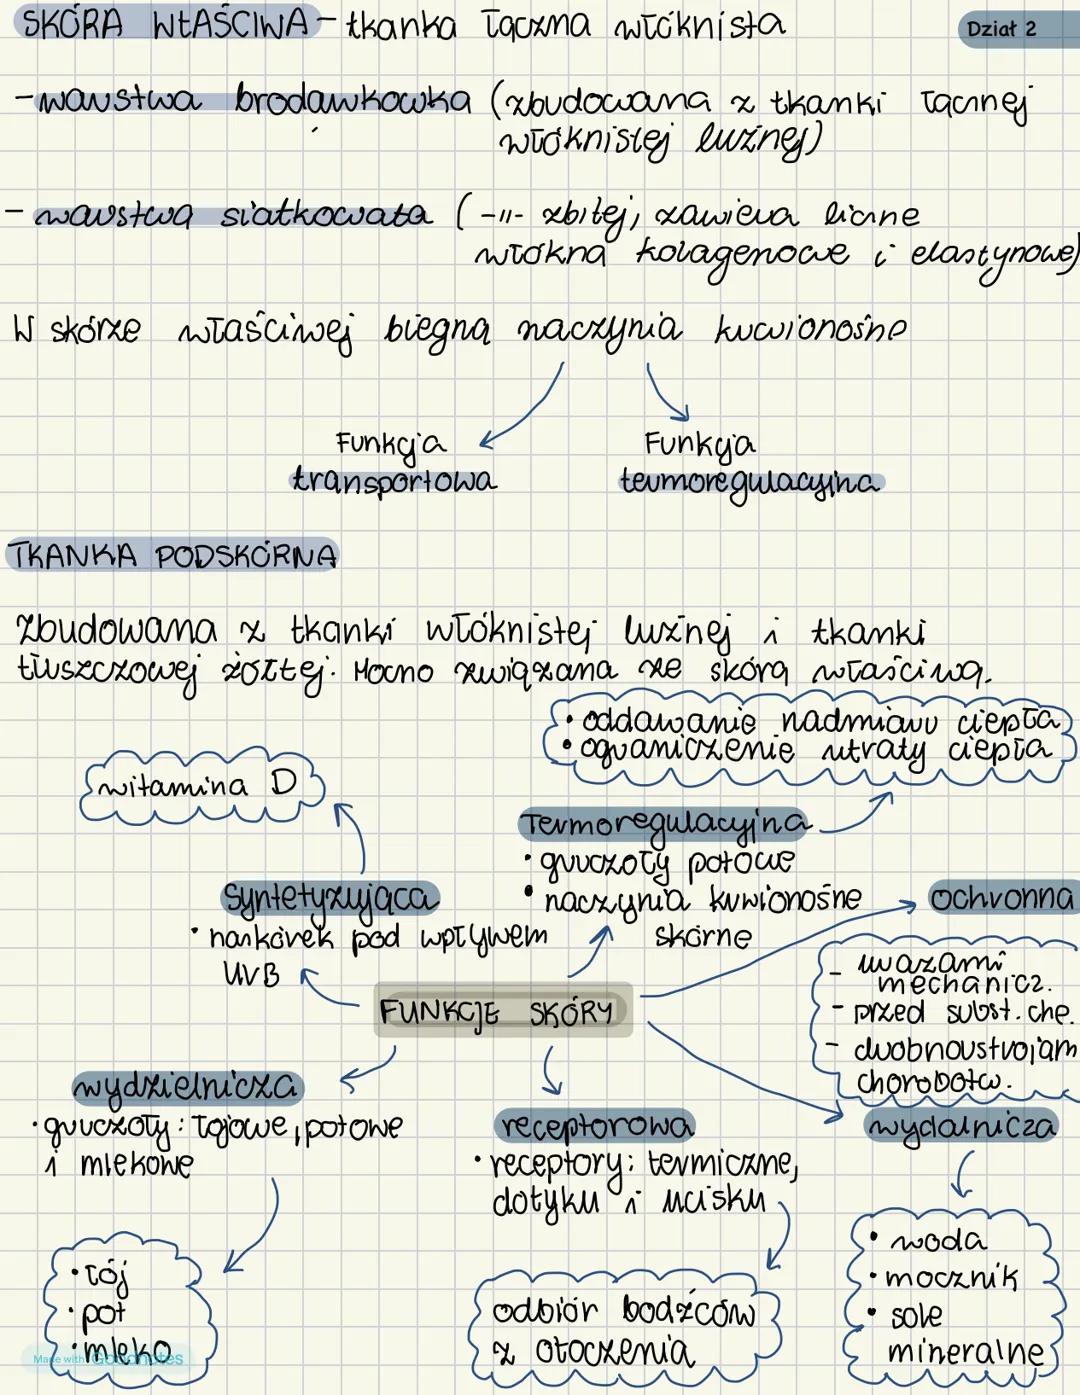 SKÓRA WŁAŚCIWA - tkanka łączna włóknista
Dział 2
- warstwa brodawkowka (zbudowana z tkanki łącznej
włóknistej luźnej)
- warstwa siatkowata (-॥- zbitej, zawiera liczne
włókna kolagenowe i elastynowe)
W skórze właściwej biegną naczynia krwionośne
Funkcja
transportowa
Funkcja
termoregulacyjna
TKANKA PODSKÓRNA
Zbudowana z tkanki włóknistej luźnej i tkanki
tłuszczowej żółtej. Mocno związana ze skórą właściwą.
• oddawanie nadmiaru ciepła
• ograniczenie utraty ciepła
witamina D
Termoregulacyjna
• gruczoły potowe
• naczynia krwionośne
skórne
syntetyzująca
• naskórek pod wpływem
UVB
ochronna
- urazami
mechanicz.
- przed subst. che.
- drobnoustrojam
chorobotw.
FUNKCJE SKÓRY
wydzielnicza
• gruczoły: łojowe, potowe
i mlekowe
receptorowa
• receptory: termiczne,
dotyku i ucisku
wydalnicza
• łój
• pot
• mleko
odbiór bodźców
z otoczenia
• woda
• mocznik
• sole
mineralne
Made with Goodnotes